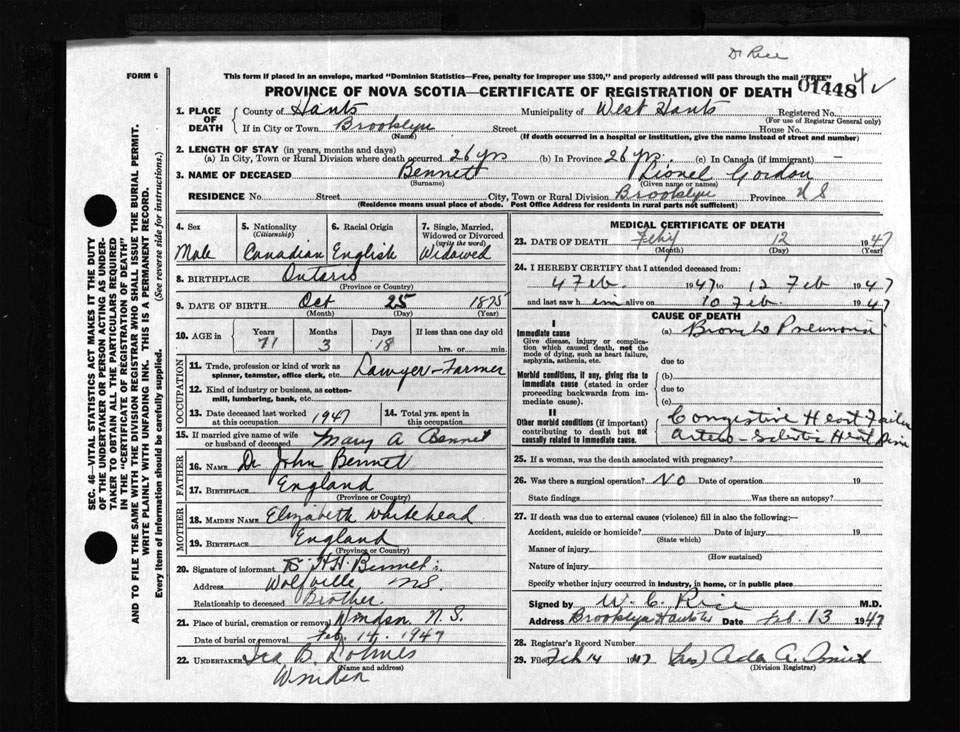 Dr Rice
FORM 6
This form if placed in an envelope, marked "Dominion Statistics—Free, penalty for improper use $300," and properly addressed will pass through the mail "FREE"
PROVINCE OF NOVA SCOTIA—CERTIFICATE OF REGISTRATION OF DEATH
01448
1. PLACE OF DEATH County of Hants Municipality of West Hants Registered No.
(For use of Registrar General only)
If in City or Town Brooklyn Street House No.
(Name) (If death occurred in a hospital or institution, give the name instead of street and number)
2. LENGTH OF STAY (in years, months and days)
(a) In City, Town or Rural Division where death occurred 26 yrs (b) In Province 26 yrs. (c) In Canada (if immigrant) —
3. NAME OF DECEASED Bennet Lionel Gordon
(Surname) (Given name or names)
RESIDENCE No. Street City, Town or Rural Division Brooklyn Province N S
(Residence means usual place of abode. Post Office Address for residents in rural parts not sufficient)
4. Sex
Male
5. Nationality
(Citizenship)
Canadian
6. Racial Origin
English
7. Single, Married, Widowed or Divorced
(write the word)
Widowed
8. BIRTHPLACE Ontario
(Province or Country)
9. DATE OF BIRTH Oct 25 1875
(Month) (Day) (Year)
10. AGE in Years Months Days If less than one day old
71 3 18 hrs. or min.
OCCUPATION
11. Trade, profession or kind of work as spinner, teamster, office clerk, etc. Lawyer-Farmer
12. Kind of industry or business, as cotton-mill, lumbering, bank, etc.
13. Date deceased last worked at this occupation 1947
14. Total yrs. spent in this occupation
15. If married give name of wife or husband of deceased Mary A Bennet
FATHER
16. NAME Dr John Bennet
17. BIRTHPLACE England
(Province or Country)
MOTHER
18. MAIDEN NAME Elizabeth Whitehead
19. BIRTHPLACE England
(Province or Country)
20. Signature of informant H.H. Bennet
Address Wolfville NS
Relationship to deceased Brother
21. Place of burial, cremation or removal Windsor N. S.
Date of burial or removal Feb. 14. 1947
22. UNDERTAKER Ira B.
(Name and address)
Windsor
MEDICAL CERTIFICATE OF DEATH
23. DATE OF DEATH 12 1947
(Month) (Day) (Year)
24. I HEREBY CERTIFY that I attended deceased from:
4 Feb. 1947 to 12 Feb 1947
and last saw him alive on 10 Feb. 1947
CAUSE OF DEATH
I
Immediate cause (a) Broncho Pneumonia
Give disease, injury or complication which caused death, not the mode of dying, such as heart failure, asphyxia, asthenia, etc.
due to
Morbid conditions, if any, giving rise to immediate cause (stated in order proceeding backwards from immediate cause).
(b)
due to
(c)
II
Other morbid conditions (if important) contributing to death but not causally related to immediate cause.
Congestive Heart Failure
Heart
25. If a woman, was the death associated with pregnancy?
26. Was there a surgical operation? NO Date of operation 19
State findings Was there an autopsy?
27. If death was due to external causes (violence) fill in also the following:—
Accident, suicide or homicide? Date of injury 19
(State which)
Manner of injury
(How sustained)
Nature of injury
Specify whether injury occurred in industry, in home, or in public place
Signed by W. C. Rice M.D.
Address Brooklyn Hants Date Feb. 13 1947
28. Registrar's Record Number
29. Filed Feb 14 1947 (Mrs) Ada A.
(Division Registrar)
SEC. 46—VITAL STATISTICS ACT MAKES IT THE DUTY
OF THE UNDERTAKER OR PERSON ACTING AS UNDER-
TAKER TO OBTAIN ALL THE PARTICULARS REQUIRED
IN THE "CERTIFICATE OF REGISTRATION OF DEATH"
AND TO FILE THE SAME WITH THE DIVISION REGISTRAR WHO SHALL ISSUE THE BURIAL PERMIT.
WRITE PLAINLY WITH UNFADING INK. THIS IS A PERMANENT RECORD.
Every item of information should be carefully supplied. (See reverse side for instructions.)